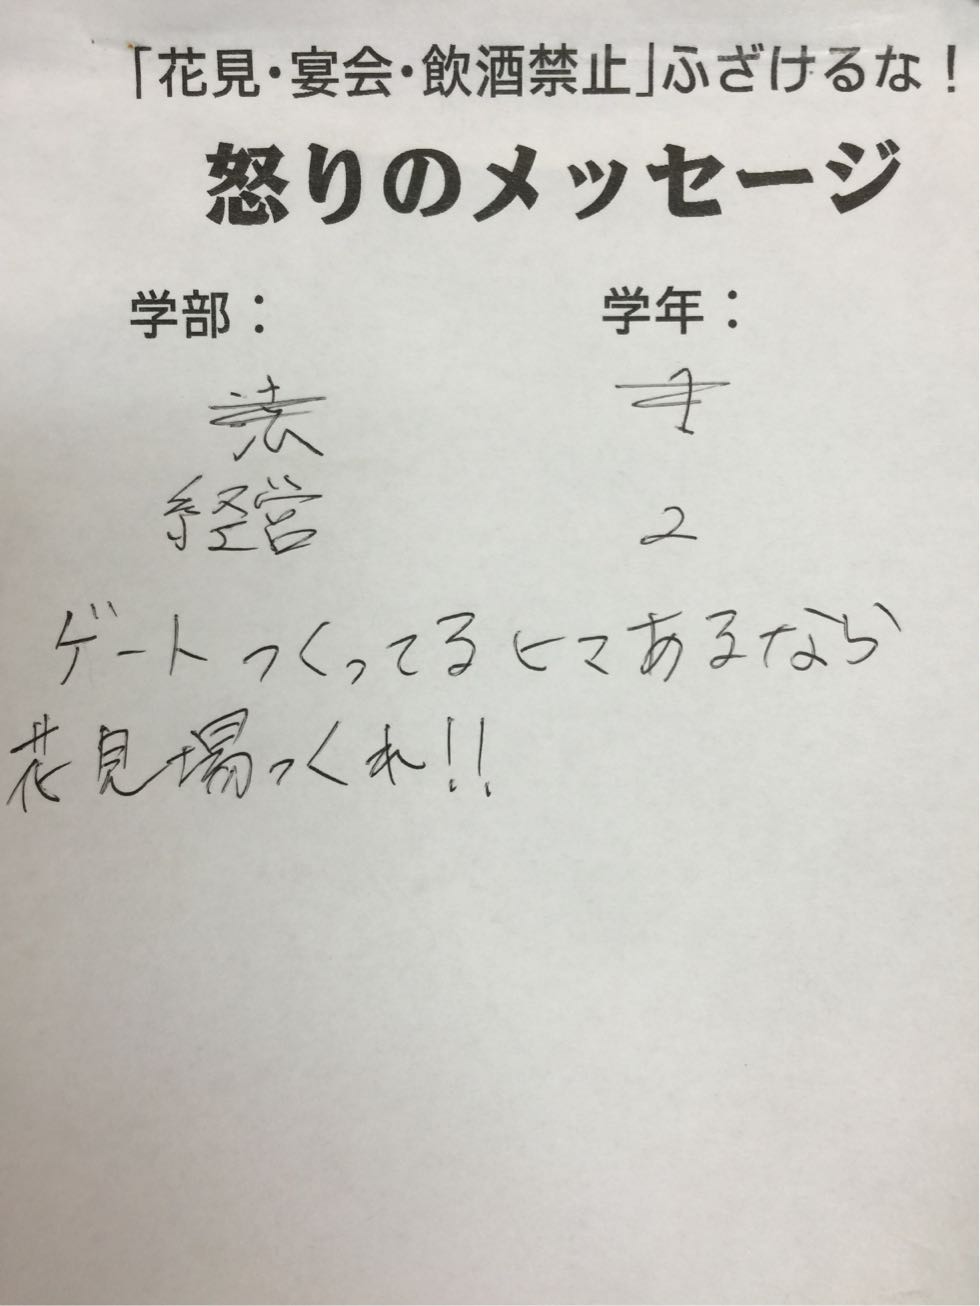 「花見・宴会・飲酒禁止」ふざけるな！
怒りのメッセージ
学部： 学年：
法 1
経営 2
ゲートつくってるヒマあるなら
花見場つくれ!!